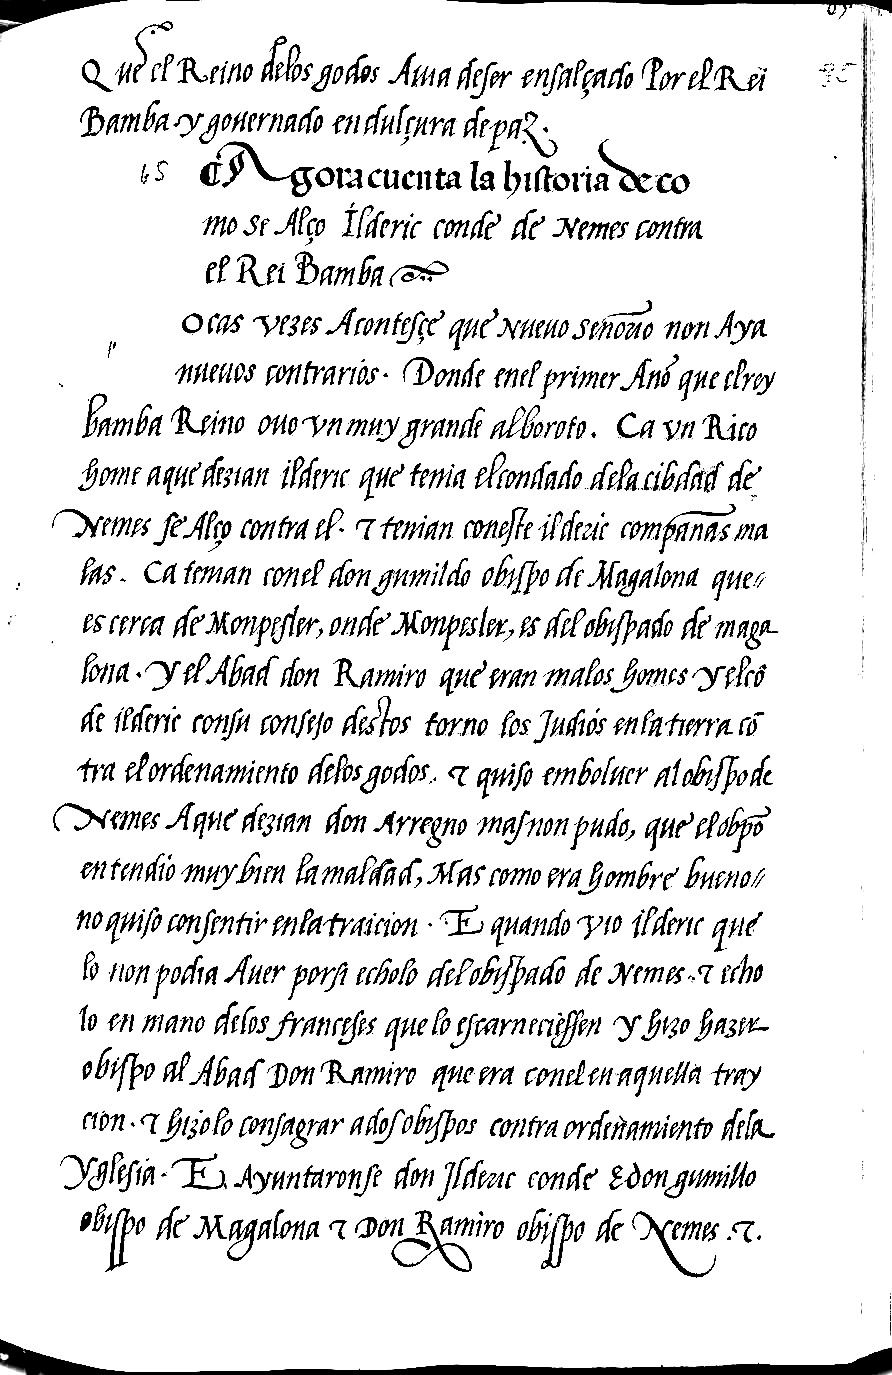 Que el Reino delos godos Auia deser ensalçado Por el Rei
Bamba y gouernado en dulçura de paz.
65 Agora cuenta la historia de co
mo se Alço Ilderic conde de Nemes contra
el Rei Bamba
ocas vezes Acontesçe que Nueuo senorio non Aya
nueuos contrarios. Donde enel primer Ano que el rey
bamba Reino ouo vn muy grande alboroto. Ca vn Rico
home aque dezian ilderic que tenia el condado dela cibdad de
Nemes se Alço contra el. ⁊ tenian coneste ilderic companas ma
las. Ca tenian conel don gumildo obispo de Magalona que//
es cerca de Monpesler, onde Monpesler, es del obispado de maga
lona. Y el Abad don Ramiro que eran malos homes Y el cō
de ilderic consu consejo destos torno los Judios en la tierra cō
tra el ordenamiento delos godos. ⁊ quiso emboluer al obispo de
Nemes Aque dezian don Arregno mas non pudo, que el obpō
entendio muy bien la maldad, Mas como era hombre bueno//
no quiso consentir en la traicion. E quando vio ilderic que
lo non podia Auer porsi echolo del obispado de Nemes. ⁊ echo
lo en mano delos franceses que lo escarneciessen y hizo hazer
obispo al Abad Don Ramiro que era conel en aquella tray
cion. ⁊ hizolo consagrar a dos obispos contra ordenamiento dela
Yglesia. E Ayuntaronse don Ilderic conde & don gumillo
obispo de Magalona ⁊ Don Ramiro obispo de Nemes .⁊.